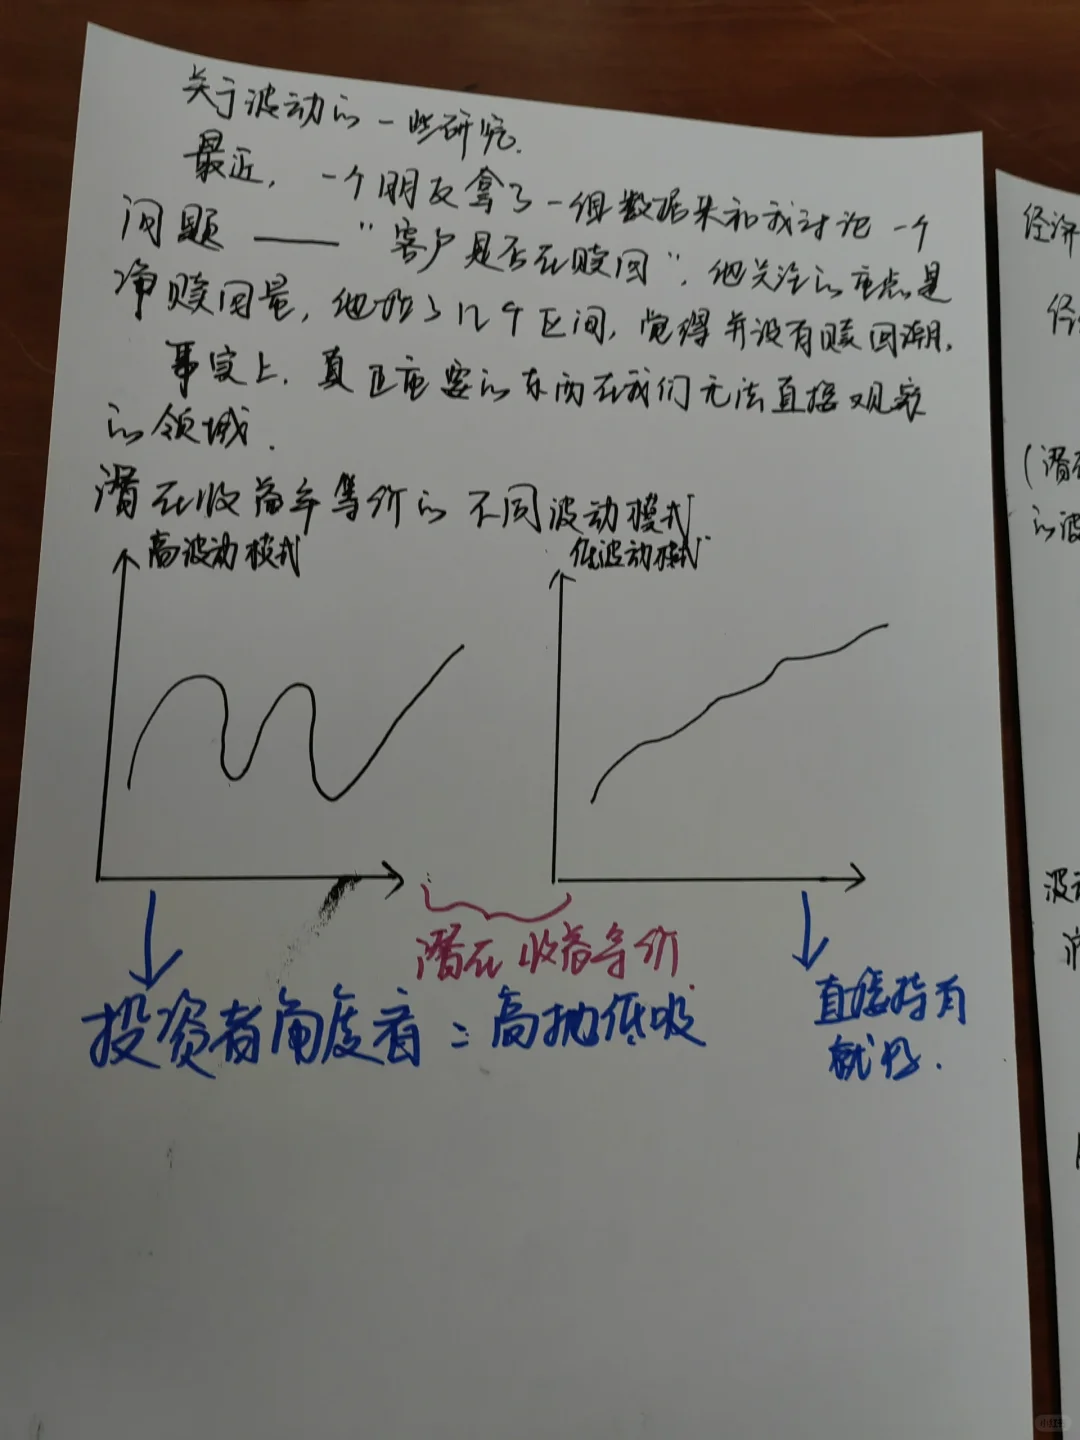 关于波动的一些研究.
最近，一个朋友拿了一组数据来和我讨论一个
问题 ——“客户是否在赎回”，他关注的重点是
净赎回量，他拉了几个区间，觉得并没有赎回潮.
事实上，真正重要的东西在我们无法直接观察
的领域.
潜在收益率等价的不同波动模式
高波动模式
低波动模式
潜在收益等价
投资者角度看：高抛低吸
直接持有
就好.
经济
经
(潜在
的波
波动
小红书